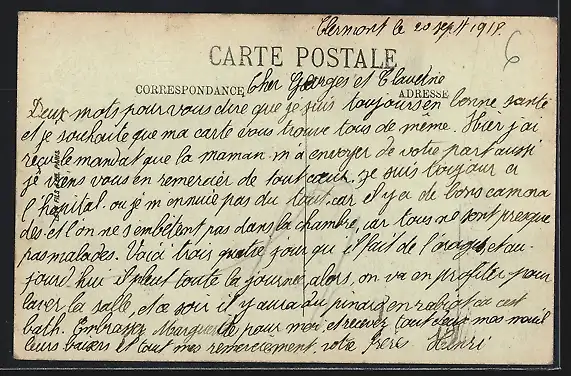 Clermont le 20 sept 1918.
6
CARTE POSTALE
CORRESPONDANCE
ADRESSE
Cher Georges et Claudine
Deux mots pour vous dire que je suis toujours en bonne santé
et je souhaite que ma carte vous trouve tous de même. Hier j'ai
reçu le mandat que la maman m'a envoyer de votre part aussi
je viens vous en remercier de tout cœur, je suis toujour a
l'hopital. ou je m'ennuie pas du tout, car il y a de bons camara
des et l'on ne s'embêtent pas dans la chambre, car tous ne sont presque
pas malades. Voici trois quatre jour qu'il fait de l'orage, et au-
jourd'hui il pleut toute la journée, alors, on va en profiter pour
laver la salle, et ce soir il y aura du pinard en rabiot ca est
bath. Embrasser Marguerite pour moi et recever tout deux mes meil
leurs baisers et tout mes remerciement. votre frere Henri